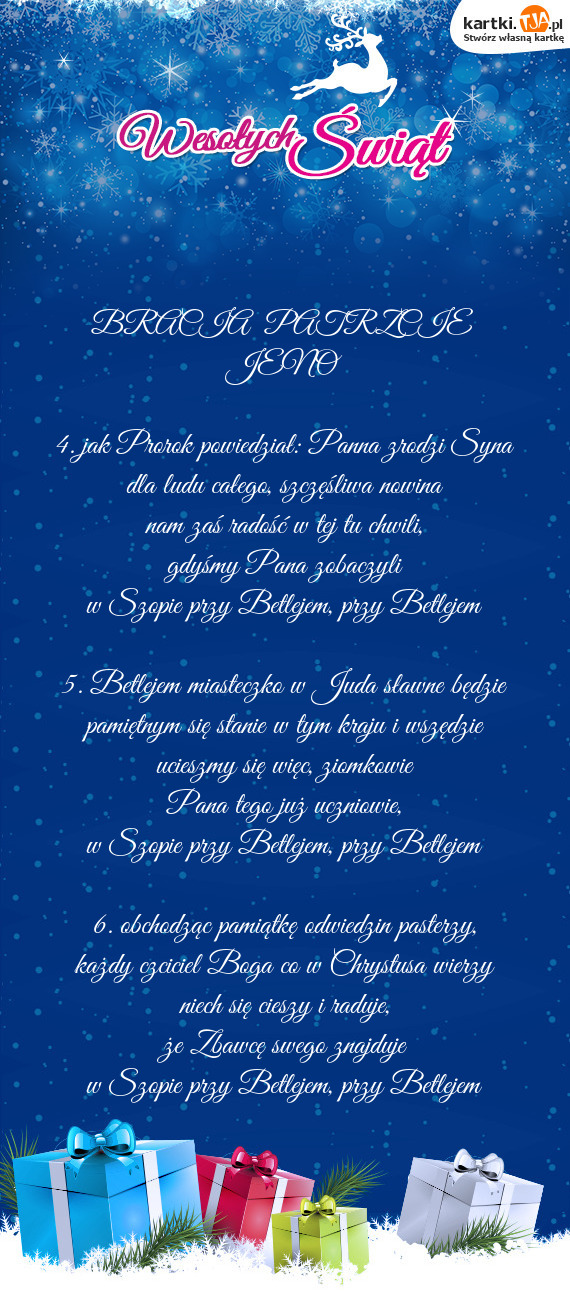 kartki.TJA.pl
Stwórz własną kartkę
Wesołych Świąt
BRACIA PATRZCIE
JENO
4. jak Prorok powiedział: Panna zrodzi Syna
dla ludu całego, szczęśliwa nowina
nam zaś radość w tej tu chwili,
gdyśmy Pana zobaczyli
w Szopie przy Betlejem, przy Betlejem
5. Betlejem miasteczko w Juda sławne będzie
pamiętnym się stanie w tym kraju i wszędzie
ucieszmy się więc, ziomkowie
Pana tego już uczniowie,
w Szopie przy Betlejem, przy Betlejem
6. obchodząc pamiątkę odwiedzin pasterzy,
każdy czciciel Boga co w Chrystusa wierzy
niech się cieszy i raduje,
że Zbawcę swego znajduje
w Szopie przy Betlejem, przy Betlejem